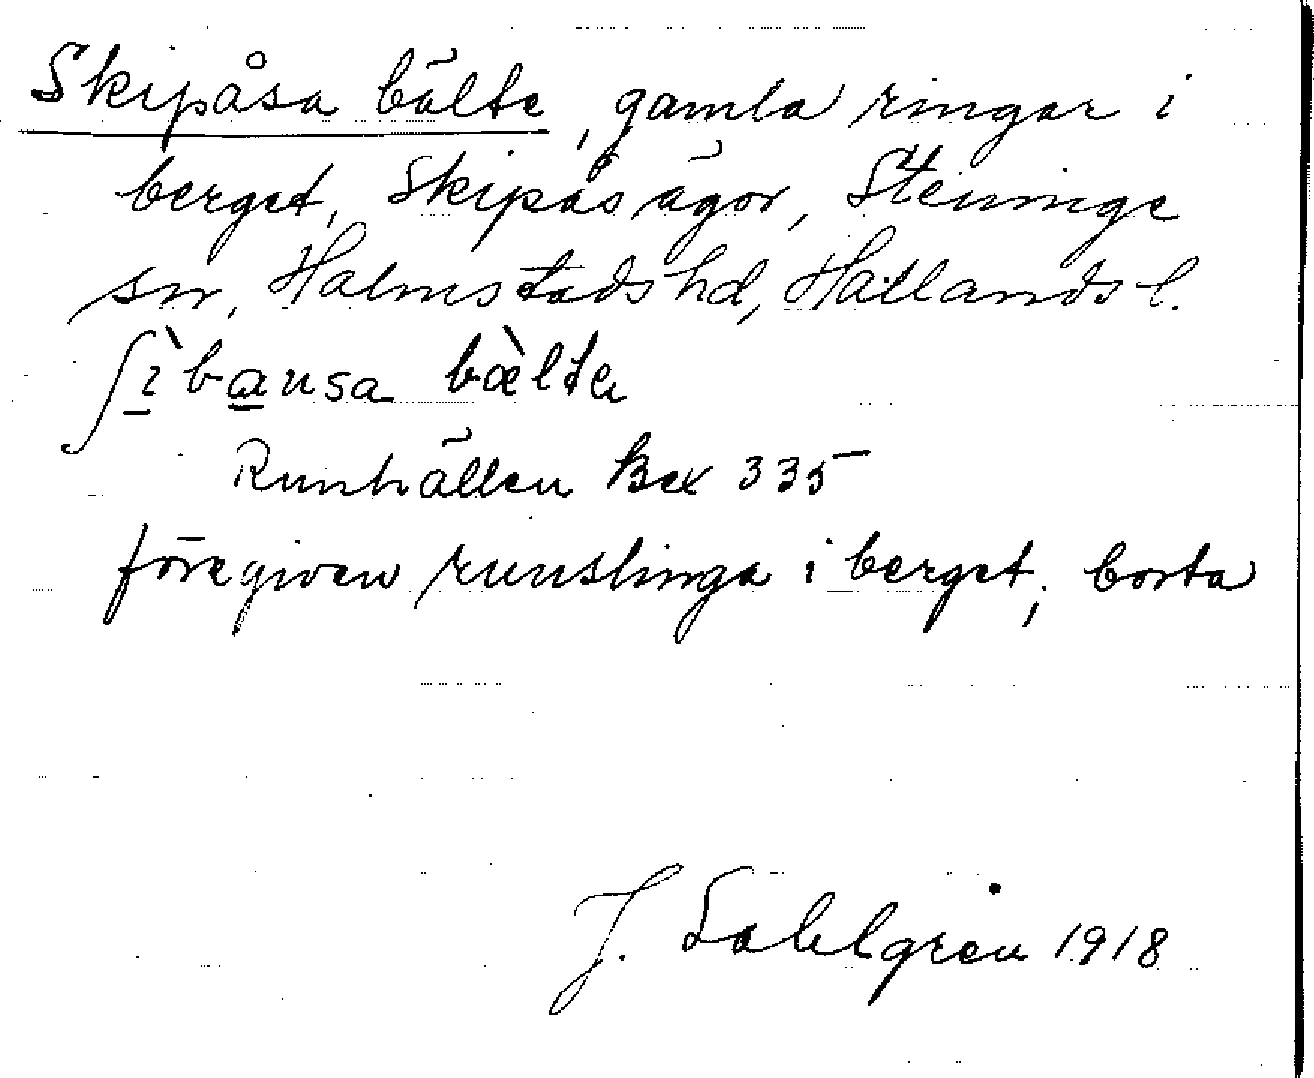 Skipåsa bälte, gamla ringar i
berget, Skipås ägor, Steninge
sn, Halmstads hd, Hallands l.
ʃì̠ba̠usa bæ̀lte
Runhällen Bex 335
föregiven runslinga i berget, borta
J. Sahlgren 1918